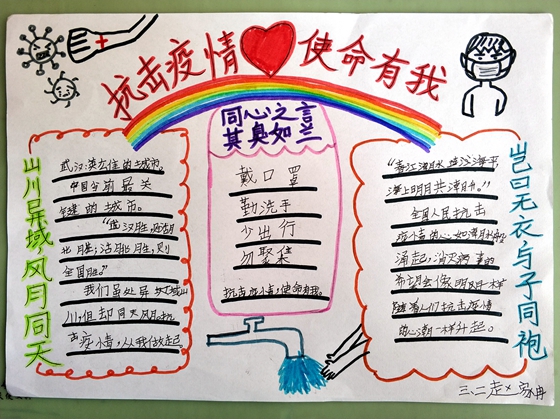 抗击疫情 使命有我
同心之言
其臭如兰
山川异域 风月同天
武汉:英雄的城市。
中目前最关
键的城市。
"武汉胜,则湖
北胜;湖北胜,则
全国胜。"
我们虽处异
川,但却同天风月。抗
击疫情,从我做起
戴口罩
勤洗手
少出行
勿聚集
抗击疫情,使命有我。
"春江潮水连海平
海上明月共潮升。"
全国人民抗击
疫情的心,如潮水般
涌起,消灭病毒的
希望会像明月一样
随着人们抗击疫情
的心潮一样升起。
岂曰无衣 与子同袍
三、二